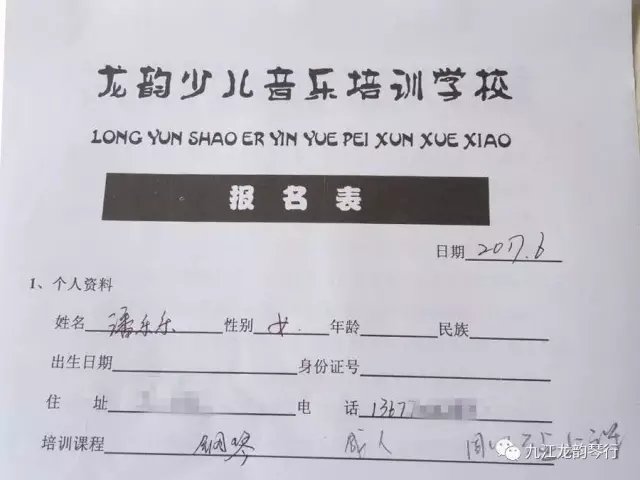 龙韵少儿音乐培训学校
LONG YUN SHAO ER YIN YUE PEI XUN XUE XIAO
报名表
日期 2017.6
1、个人资料
姓名 潘乐乐 性别 女 年龄 民族
出生日期 身份证号
住 址 电 话 1367
培训课程 钢琴 成人 周
九江龙韵琴行